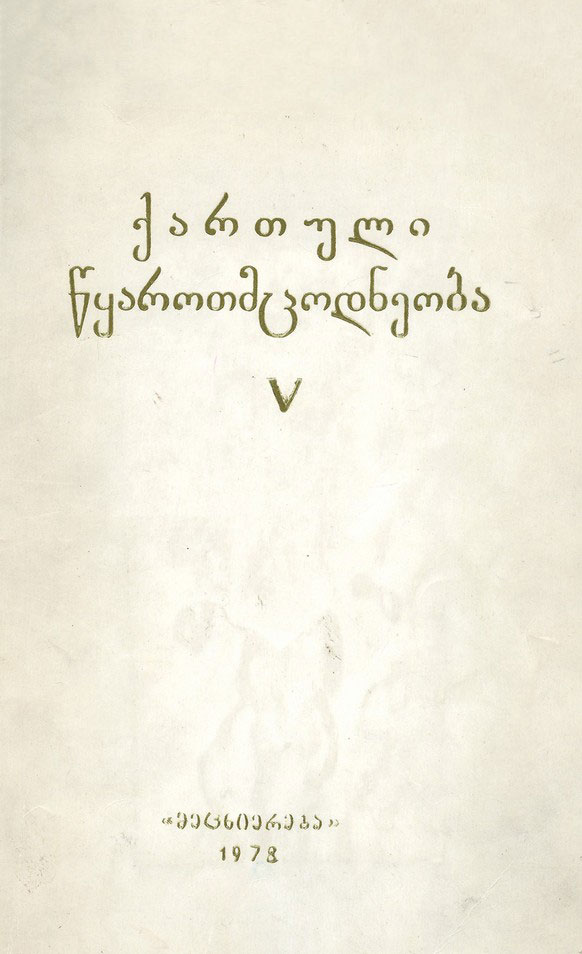 ქართული
წყაროთმცოდნეობა
V
«მეცნიერება»
1978